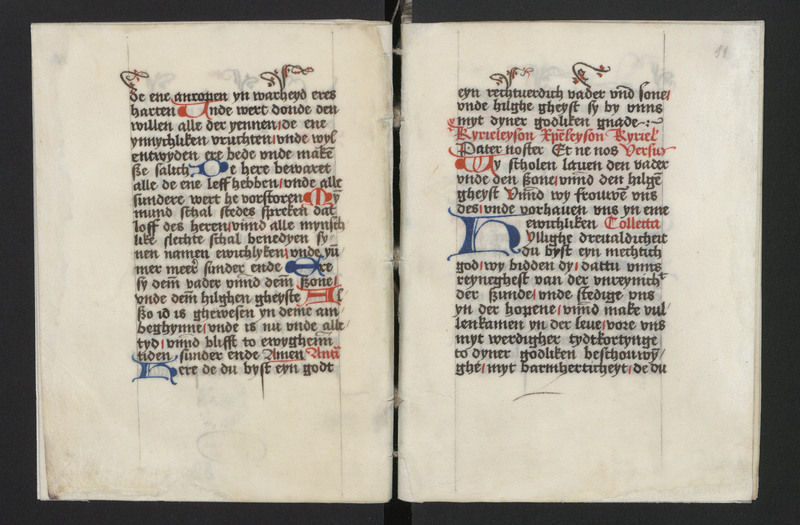 de ene anropen yn warheyd eres
harten Unde wert donde den
willen alle der yennen de ene
ynnychliken vruchten vnde wyl
entwyden ere bede vnde makē
ße salich De here bewaret
alle de ene leff hebben vnde alle
sundere wert he vorstoren My
mund schal stedes spreken dat
loff des heren vnnd alle mynsch
like slechte schal benedyen sy
nen namen ewichlyken vnde yū
mer meer sunder ende Ere
sy dem vader vnnd dem ßone
vnde dem hilghen gheyste Al
ßo id is ghewesen yn deme an
beghynne vnde is nu vnde alle
tyd vnnd blifft to ewygheim
tiden sunder ende Amen Anti
Here de du byst eyn godt
11
eyn rechtuerdich vader vnd sone
vnde hilghe gheyst sy by vnns
myt dyner godliken gnade
Kyrieleyson Xpeleyson Kyriel
Pater noster Et ne nos Versus
Wy scholen lauen den vader
vnde den ßone vnnd den hilgē
gheyst Vnnd wy frouwē vns
des vnde vorhauen vns yn eme
ewichliken Collecta
Hyllighe dreualdicheit
du byst eyn mechtich
god wy bidden dy dattu vnns
reyneghest van der vnreynich
der ßunde vnde stedige vns
yn der hopene vnnd make vul
lenkamen yn der leue vore vns
myt werdigher tydtkortynge
to dyner godliken beschouwȳ
ghe myt barmherticheyt de du